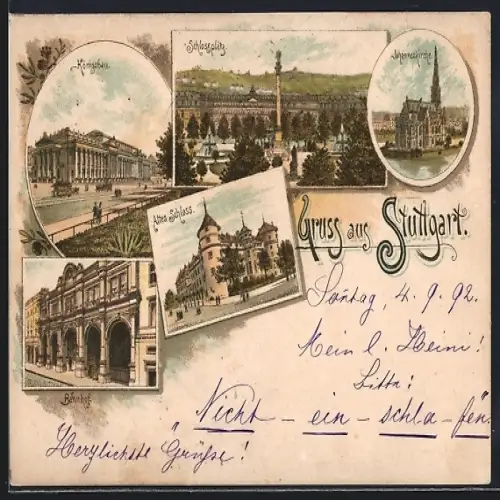 Königsbau.
Schlossplatz.
Johanneskirche.
Altes Schloss.
Gruss aus Stuttgart.
Bahnhof.
Sonntag, 4. 9. 92.
Mein l. Heini!
Bitte:
Nicht - ein - schla - fen
Herzlichste Grüsse!